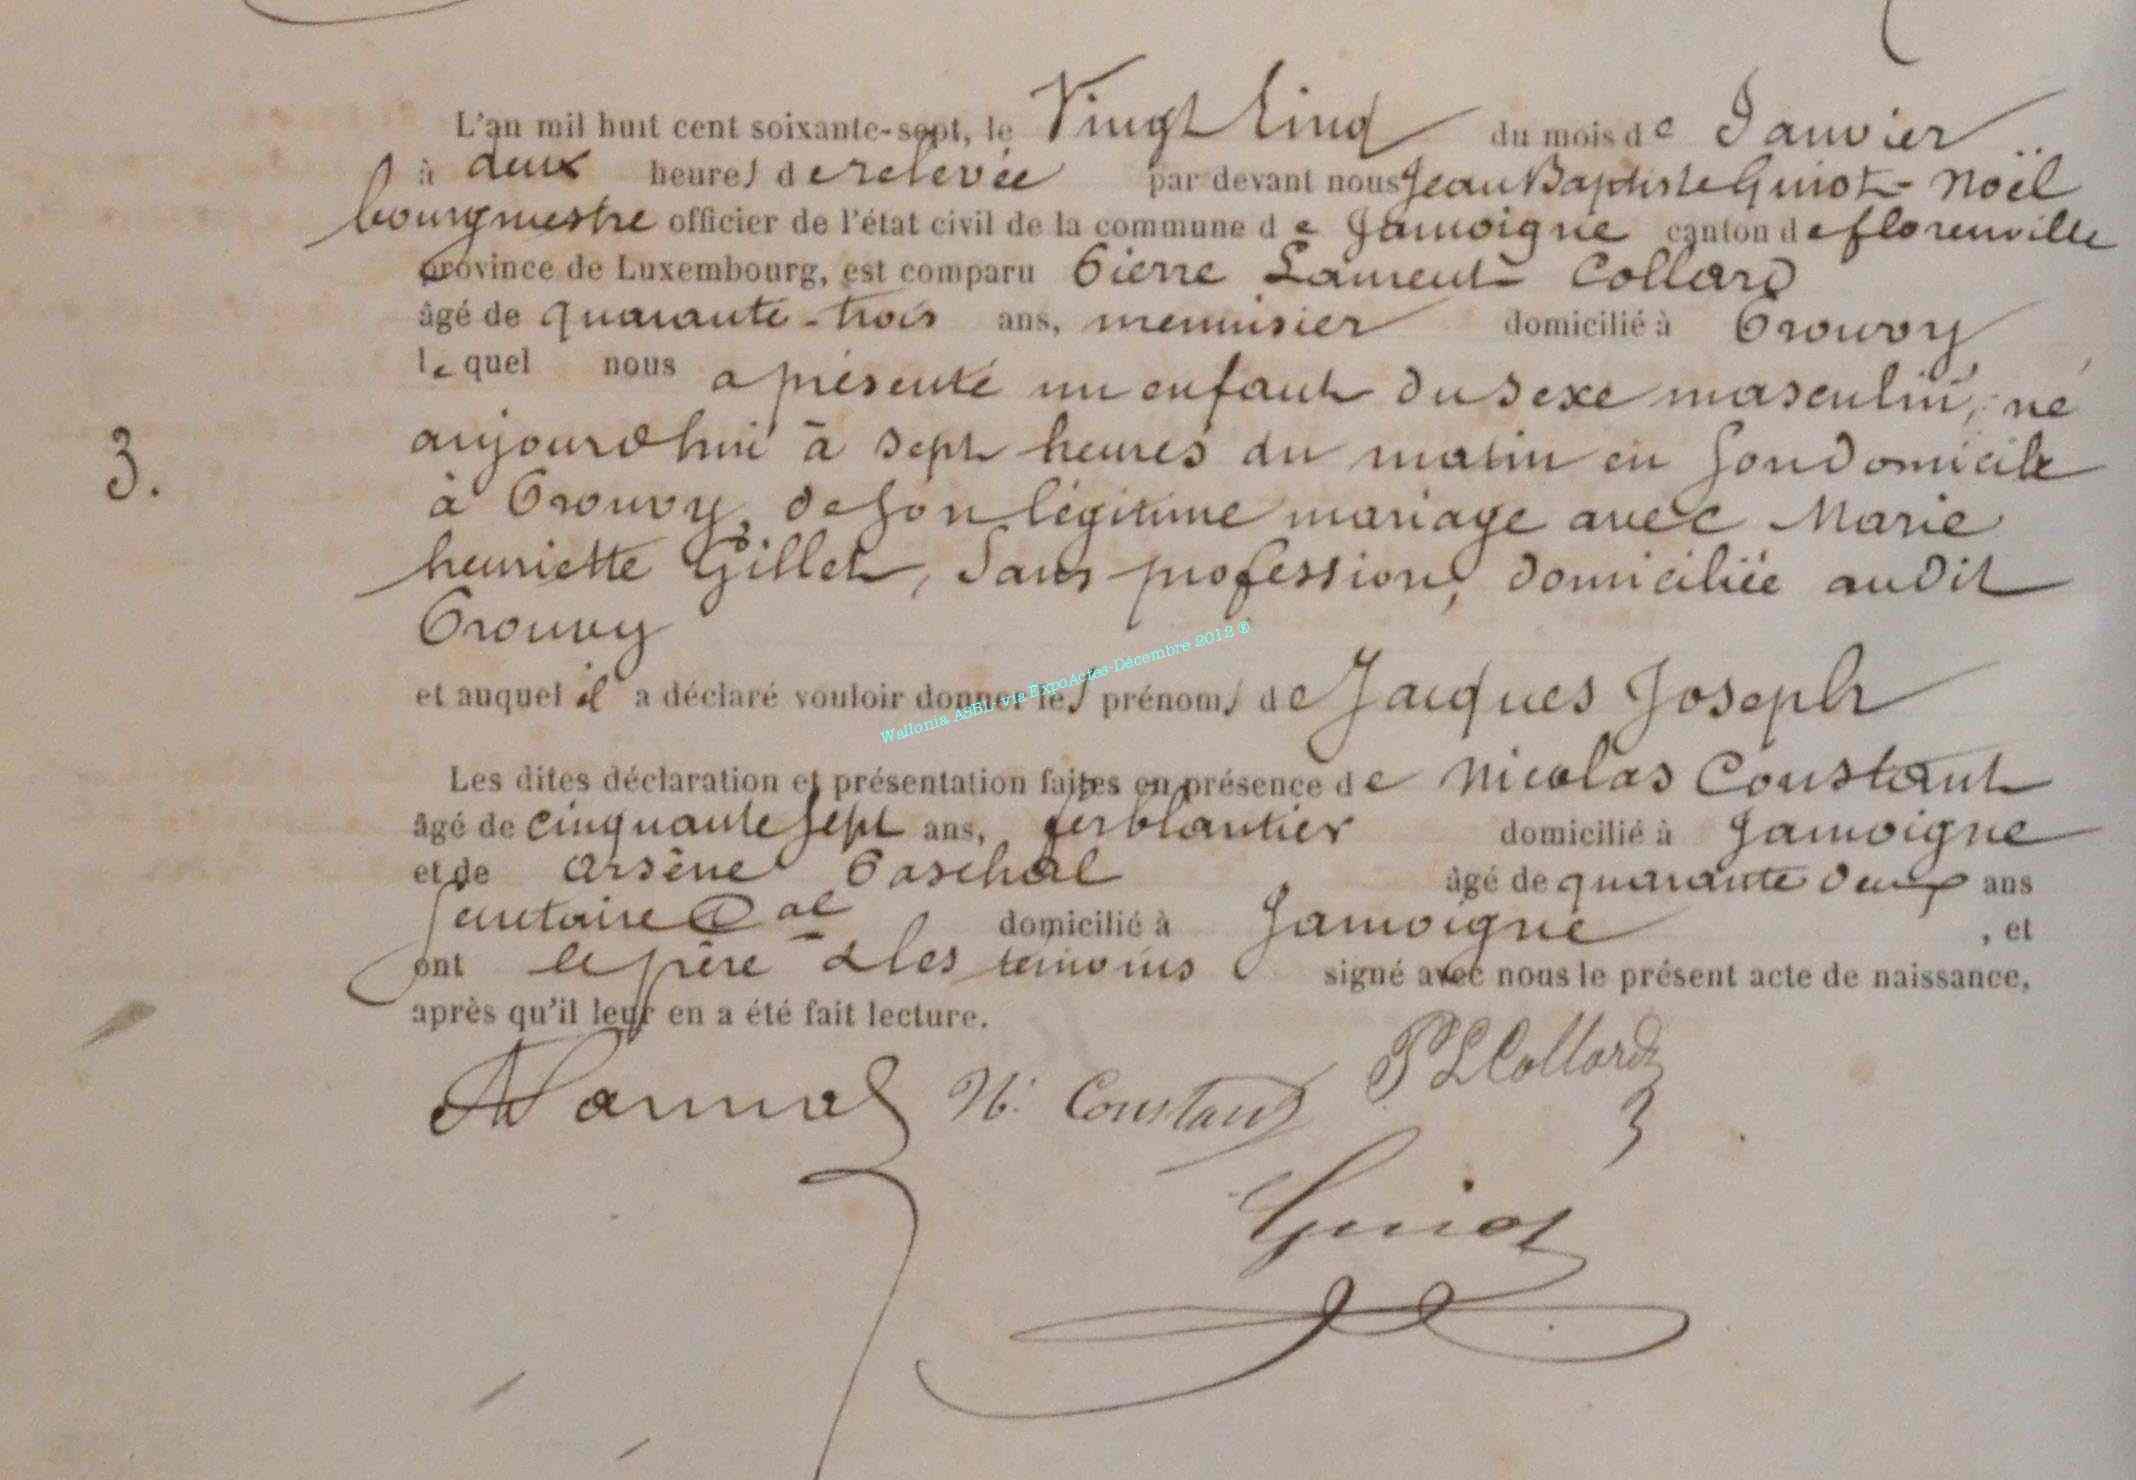 L'an mil huit cent soixante-sept, le Vingt Cinq du mois de Janvier
à deux heures de relevée par devant nous Jean Baptiste Guiot-Noël
bourgmestre officier de l'état civil de la commune de Jamoigne canton de florenville
province de Luxembourg, est comparu Pierre Laurent Collard
âgé de quarante-trois ans, menuisier domicilié à Prouvy
lequel nous a présenté un enfant du sexe masculin, né
aujourdhui à sept heures du matin en son domicile
3.
à Prouvy, de son légitime mariage avec Marie
henriette Gillet, Sans profession, domiciliée audit
Prouvy
et auquel il a déclaré vouloir donner les prénoms de Jacques Joseph
Wallonia ASBL via ExpoActes-Décembre 2012 ®
Les dites déclaration et présentation faites en présence de Nicolas Constant
âgé de cinquante sept ans, ferblantier domicilié à Jamoigne
et de Arsène Paschal âgé de quarante deux ans
Secrétaire Cal domicilié à Jamoigne, et
ont le père & les témoins signé avec nous le présent acte de naissance,
après qu'il leur en a été fait lecture.
P L Collard
N. Constant
Guiot